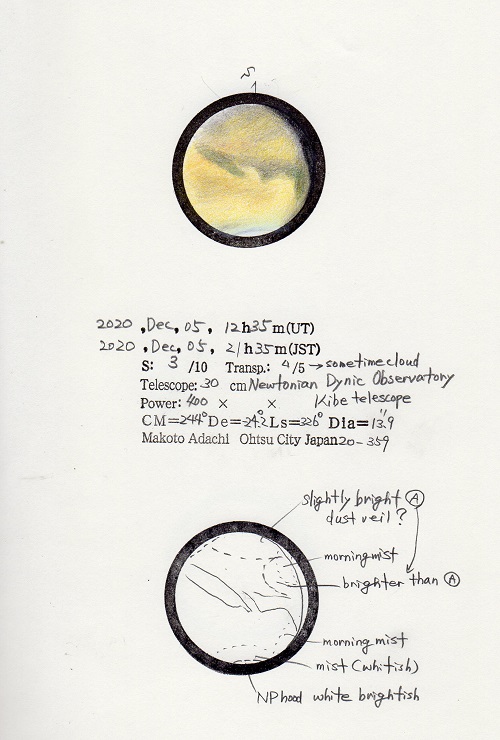 S
2020 ,Dec, 05, 12h35m(UT)
2020 ,Dec, 05, 21h35m(JST)
S: 3 /10 Transp.: 4/5→sometimecloud
Telescope: 30 cm Newtonian Dynic Observatory
Power: 400 × × Kibe telescope
CM=244° De=-24.2° Ls=326° Dia=13.9"
Makoto Adachi Ohtsu City Japan 20-359
slightly bright Ⓐ
dust veil ?
morningmist
brighter than Ⓐ
morning mist
mist (whitish)
NPhood white brightish